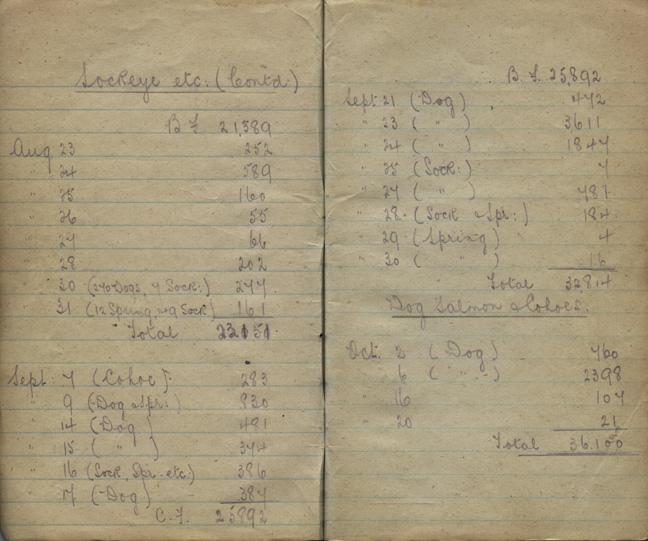 Sockeye etc. (Contd)
B F 21,389
Aug 23 252
" 24 589
" 25 160
" 26 55
" 27 66
" 28 202
" 30 (270 Dogs, 7 Sock:) 277
" 31 (12 Spring, 149 Sock) 161
Total 23151
Sept 7 (Cohoe) 283
" 9 (Dog & Spr:) 830
" 14 (Dog) 481
" 15 ( " ) 374
" 16 (Sock, Spr. etc) 386
" 17 (Dog) 387
C.F. 25892
B. F. 25,892
Sept 21 (Dog) 472
" 23 ( " ) 3611
" 24 ( " ) 1847
" 25 (Sock:) 7
" 27 ( " ) 781
" 28 (Sock & Spr:) 184
" 29 (Spring) 4
" 30 ( " ) 16
Total 32814
Dog Salmon & Cohoes.
Oct. 2 (Dog) 760
" 6 ( " ) 2398
" 16 107
" 20 21
Total 36.100